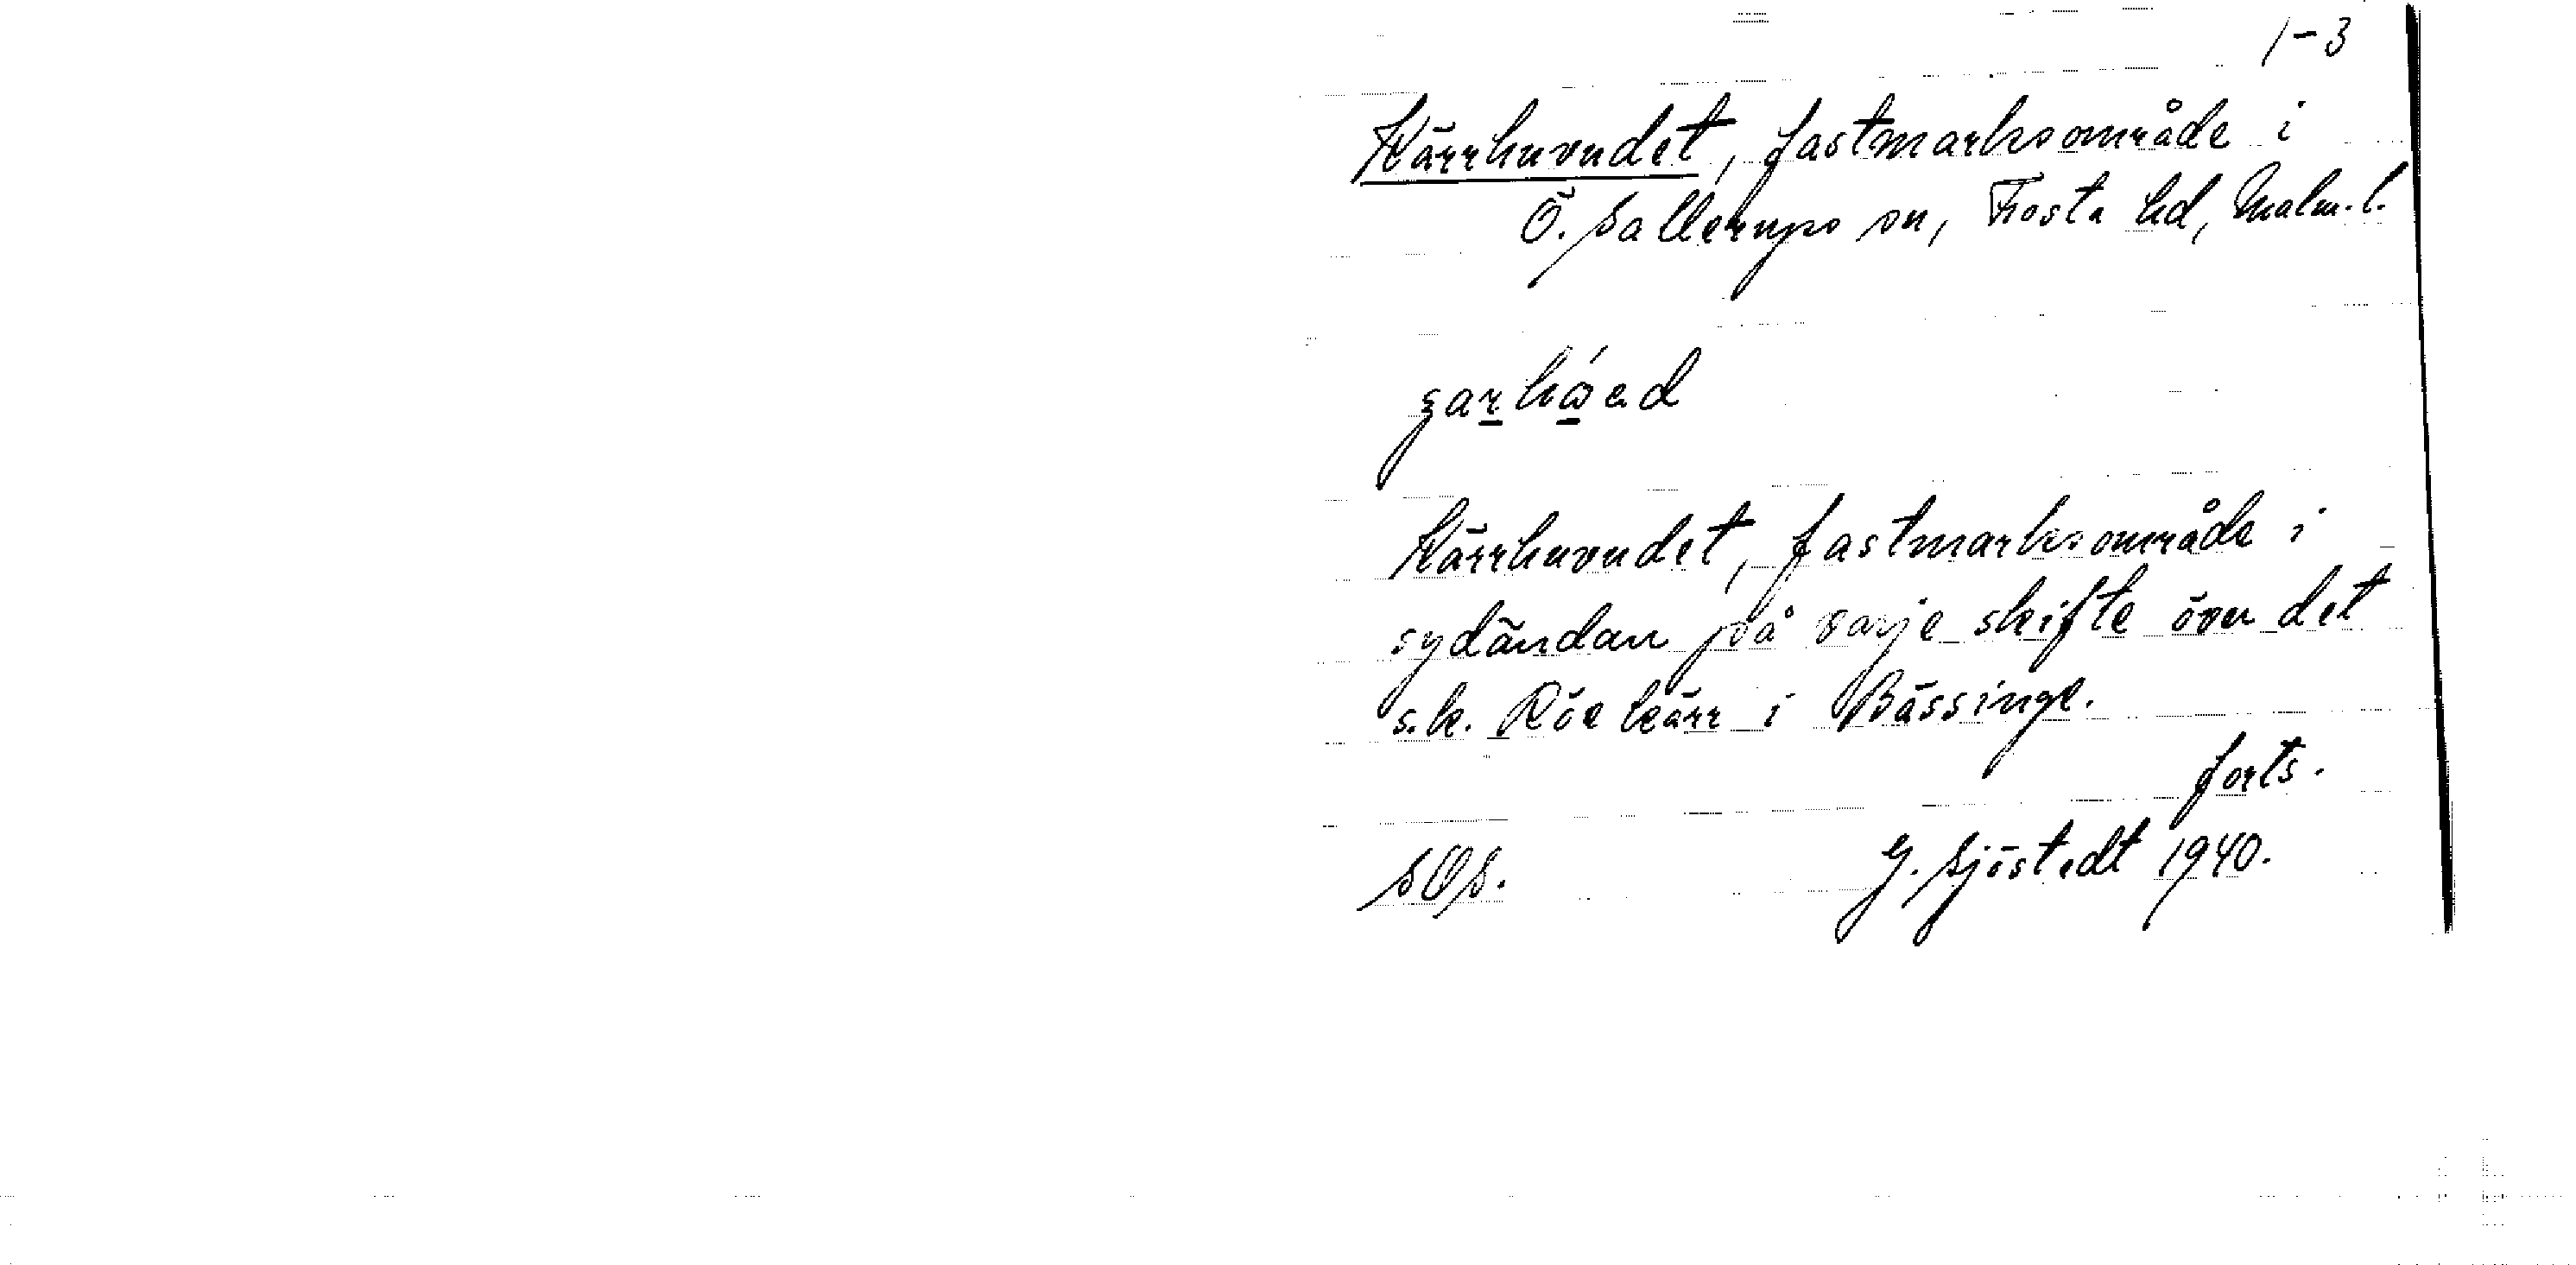 1-3
Kärrhuvudet, fastmarksområde i
Ö. Sallerups sn, Frosta hd, Malm. l.
Kärrhuvudet, fastmarksområde i
sydändan på varje skifte över det
s.k. Röe kärr i Bässinge.
forts.
SOS. G. Sjöstedt 1940.